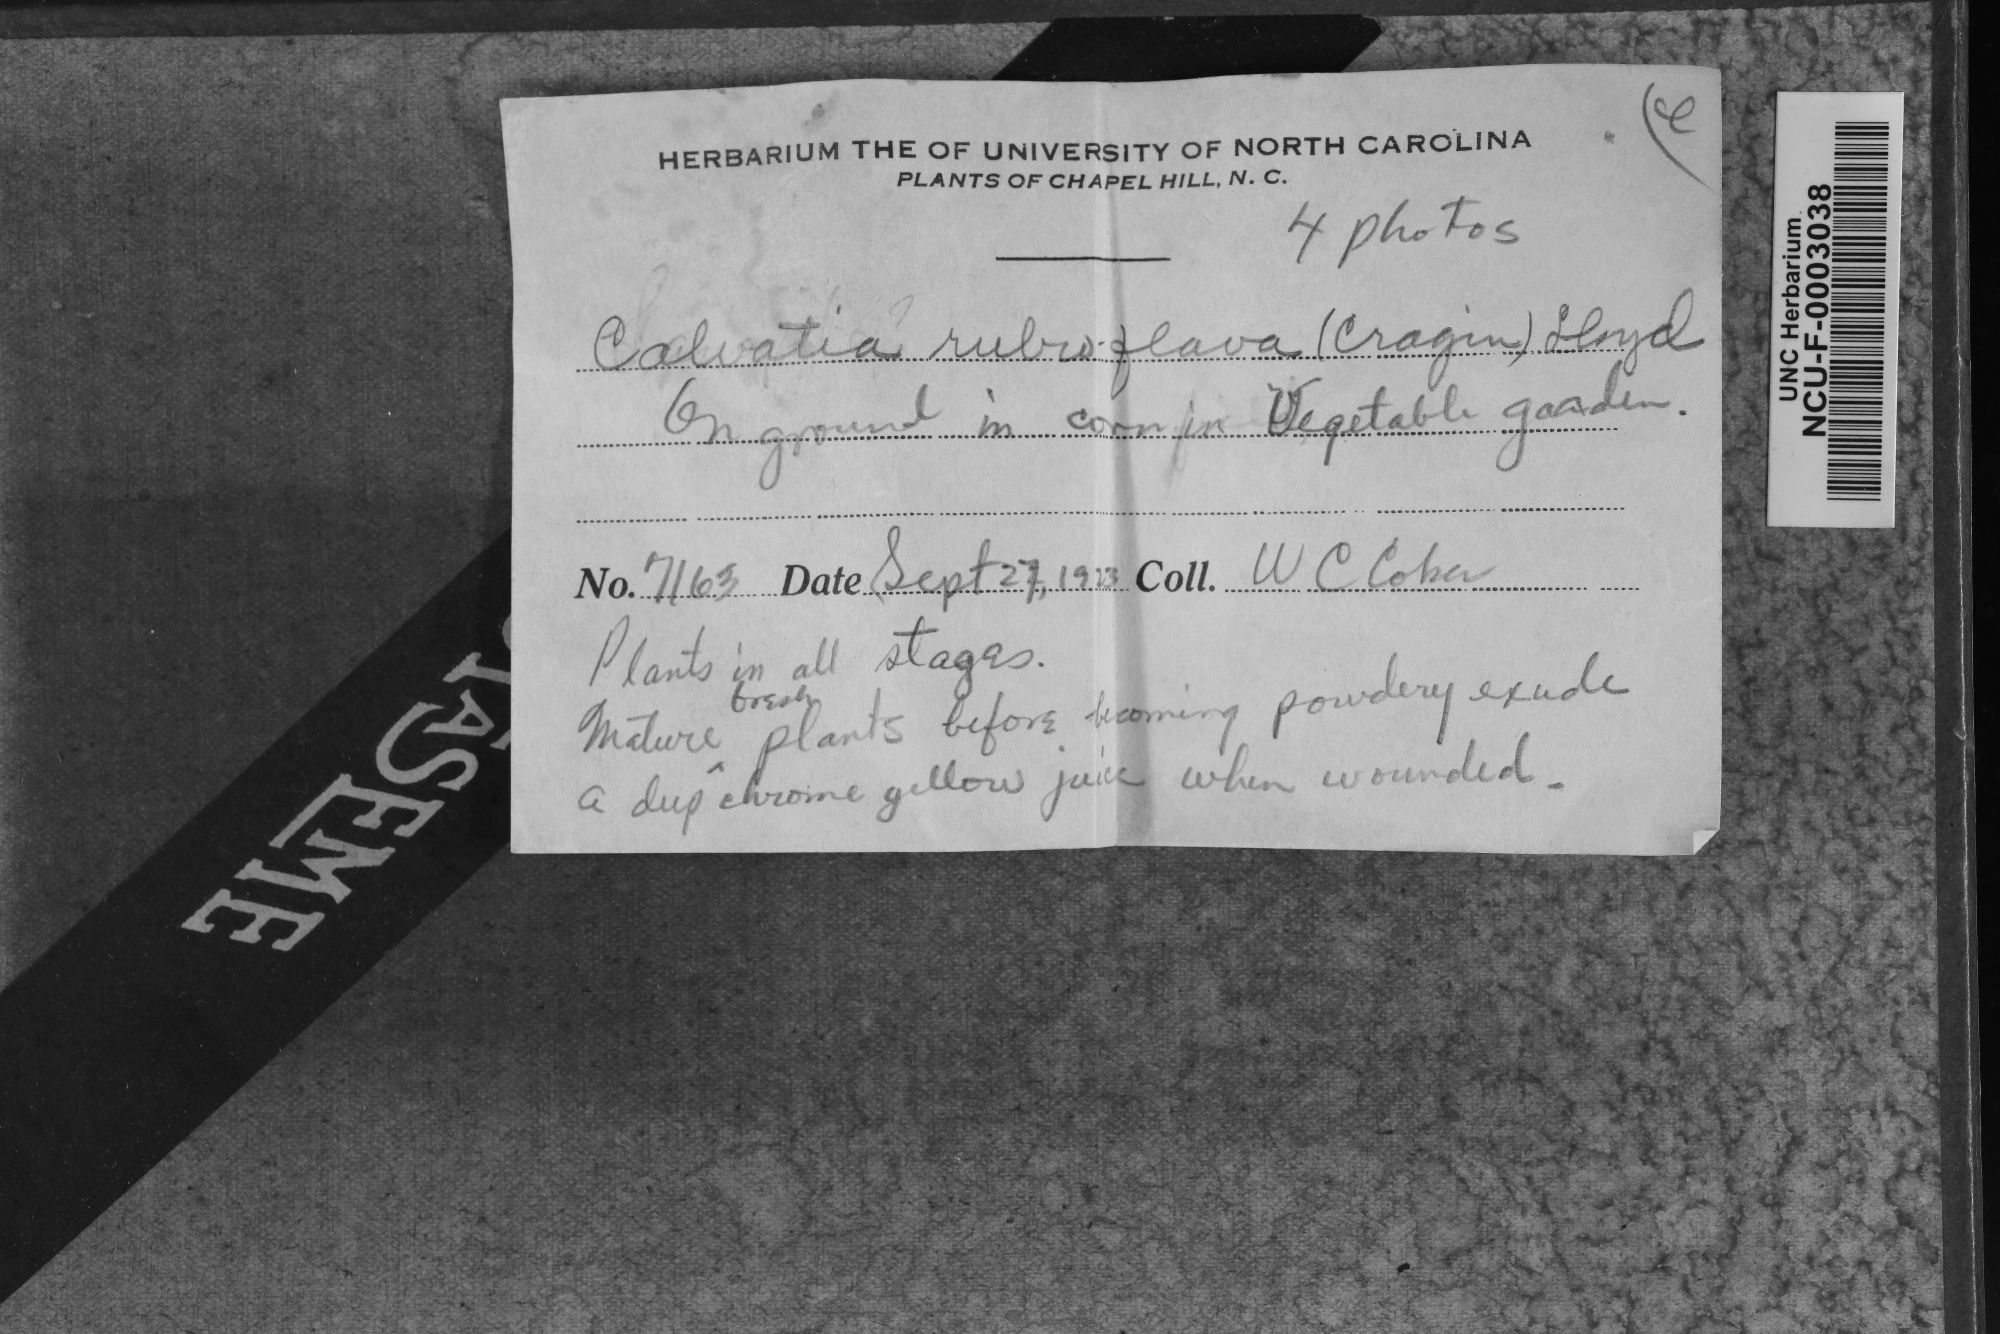 HERBARIUM THE OF UNIVERSITY OF NORTH CAROLINA
PLANTS OF CHAPEL HILL, N. C.
4 photos
Calvatia rubro-flava (Cragin) Lloyd
On ground in corn in Vegetable garden.
No. 7163 Date Sept 27, 1923 Coll. W C Coker
Plants in all stages.
fresh
Mature plants before becoming powdery exude
a deep ^ chrome yellow juice when wounded.
UNC Herbarium
NCU-F-0003038
SEME